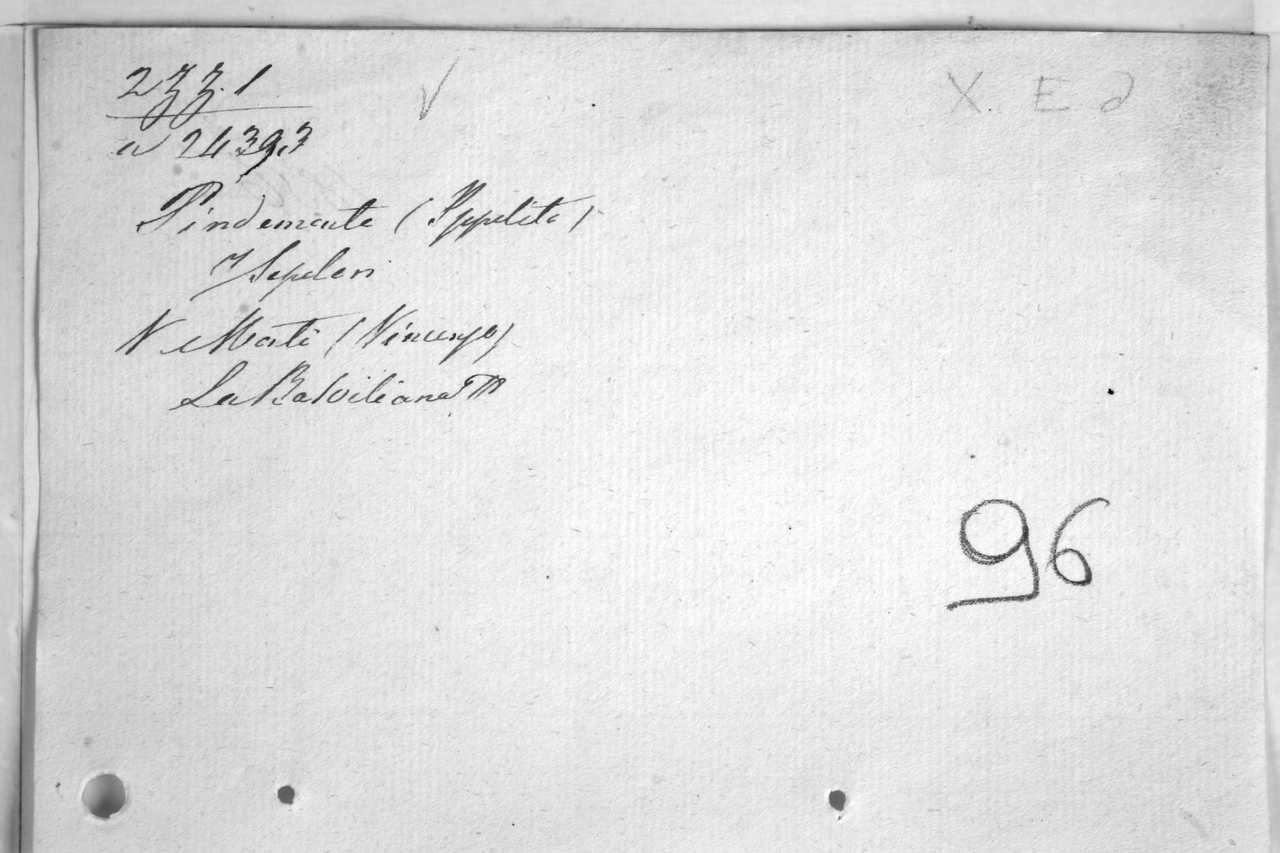 2yy.1 X. E d
a 24393
Pindemonte (Ippolito)
I Sepolcri
V Monti (Vincenzo)
La Basviliana
96